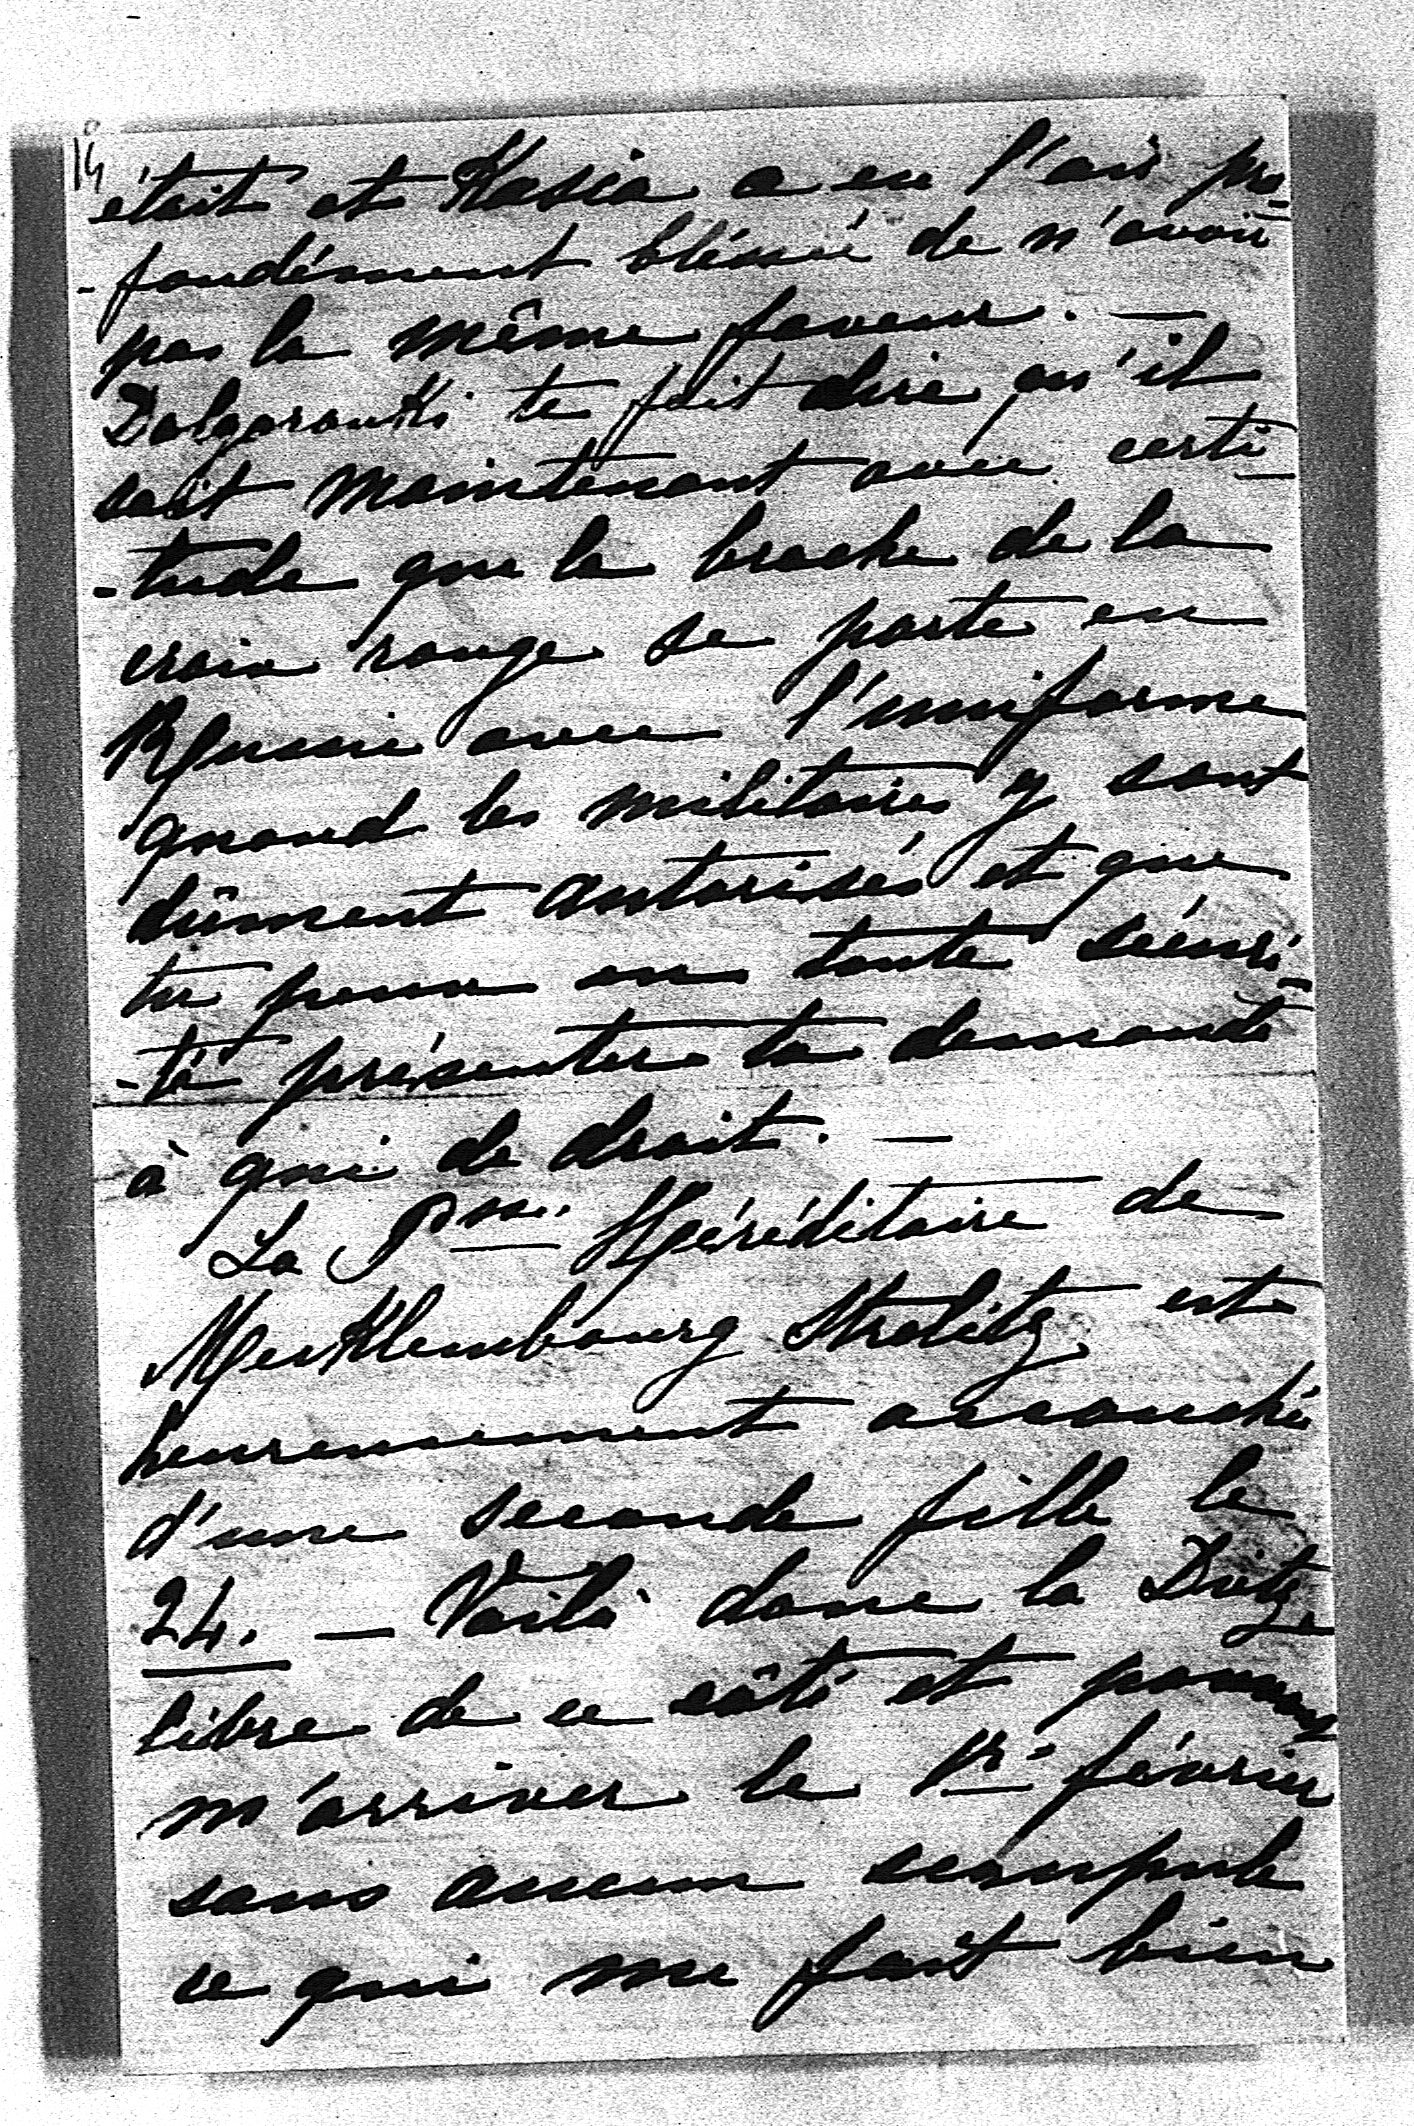 14
était et Kasia a eu l'air pro-
-fondément bléssée de n'avoir
pas la même faveur. —
Dolgorouki te fait dire qu'il
sait maintenant avec certi-
-tude que la broche de la
croix rouge se porte en
Russie avec l'uniforme
quand les militaires y sont
dûment autorisés et que
tu peux en toute sécuri-
-té présenter ta demande
à qui de droit. —
La Psse. Héréditaire de
Mecklembourg Strelitz est
heureusement accouchée
d'une seconde fille le
24. — Voilà donc la
libre de ce côté et pouvant
m'arriver le 1r février
sans aucun scrupule
ce qui me fait bien